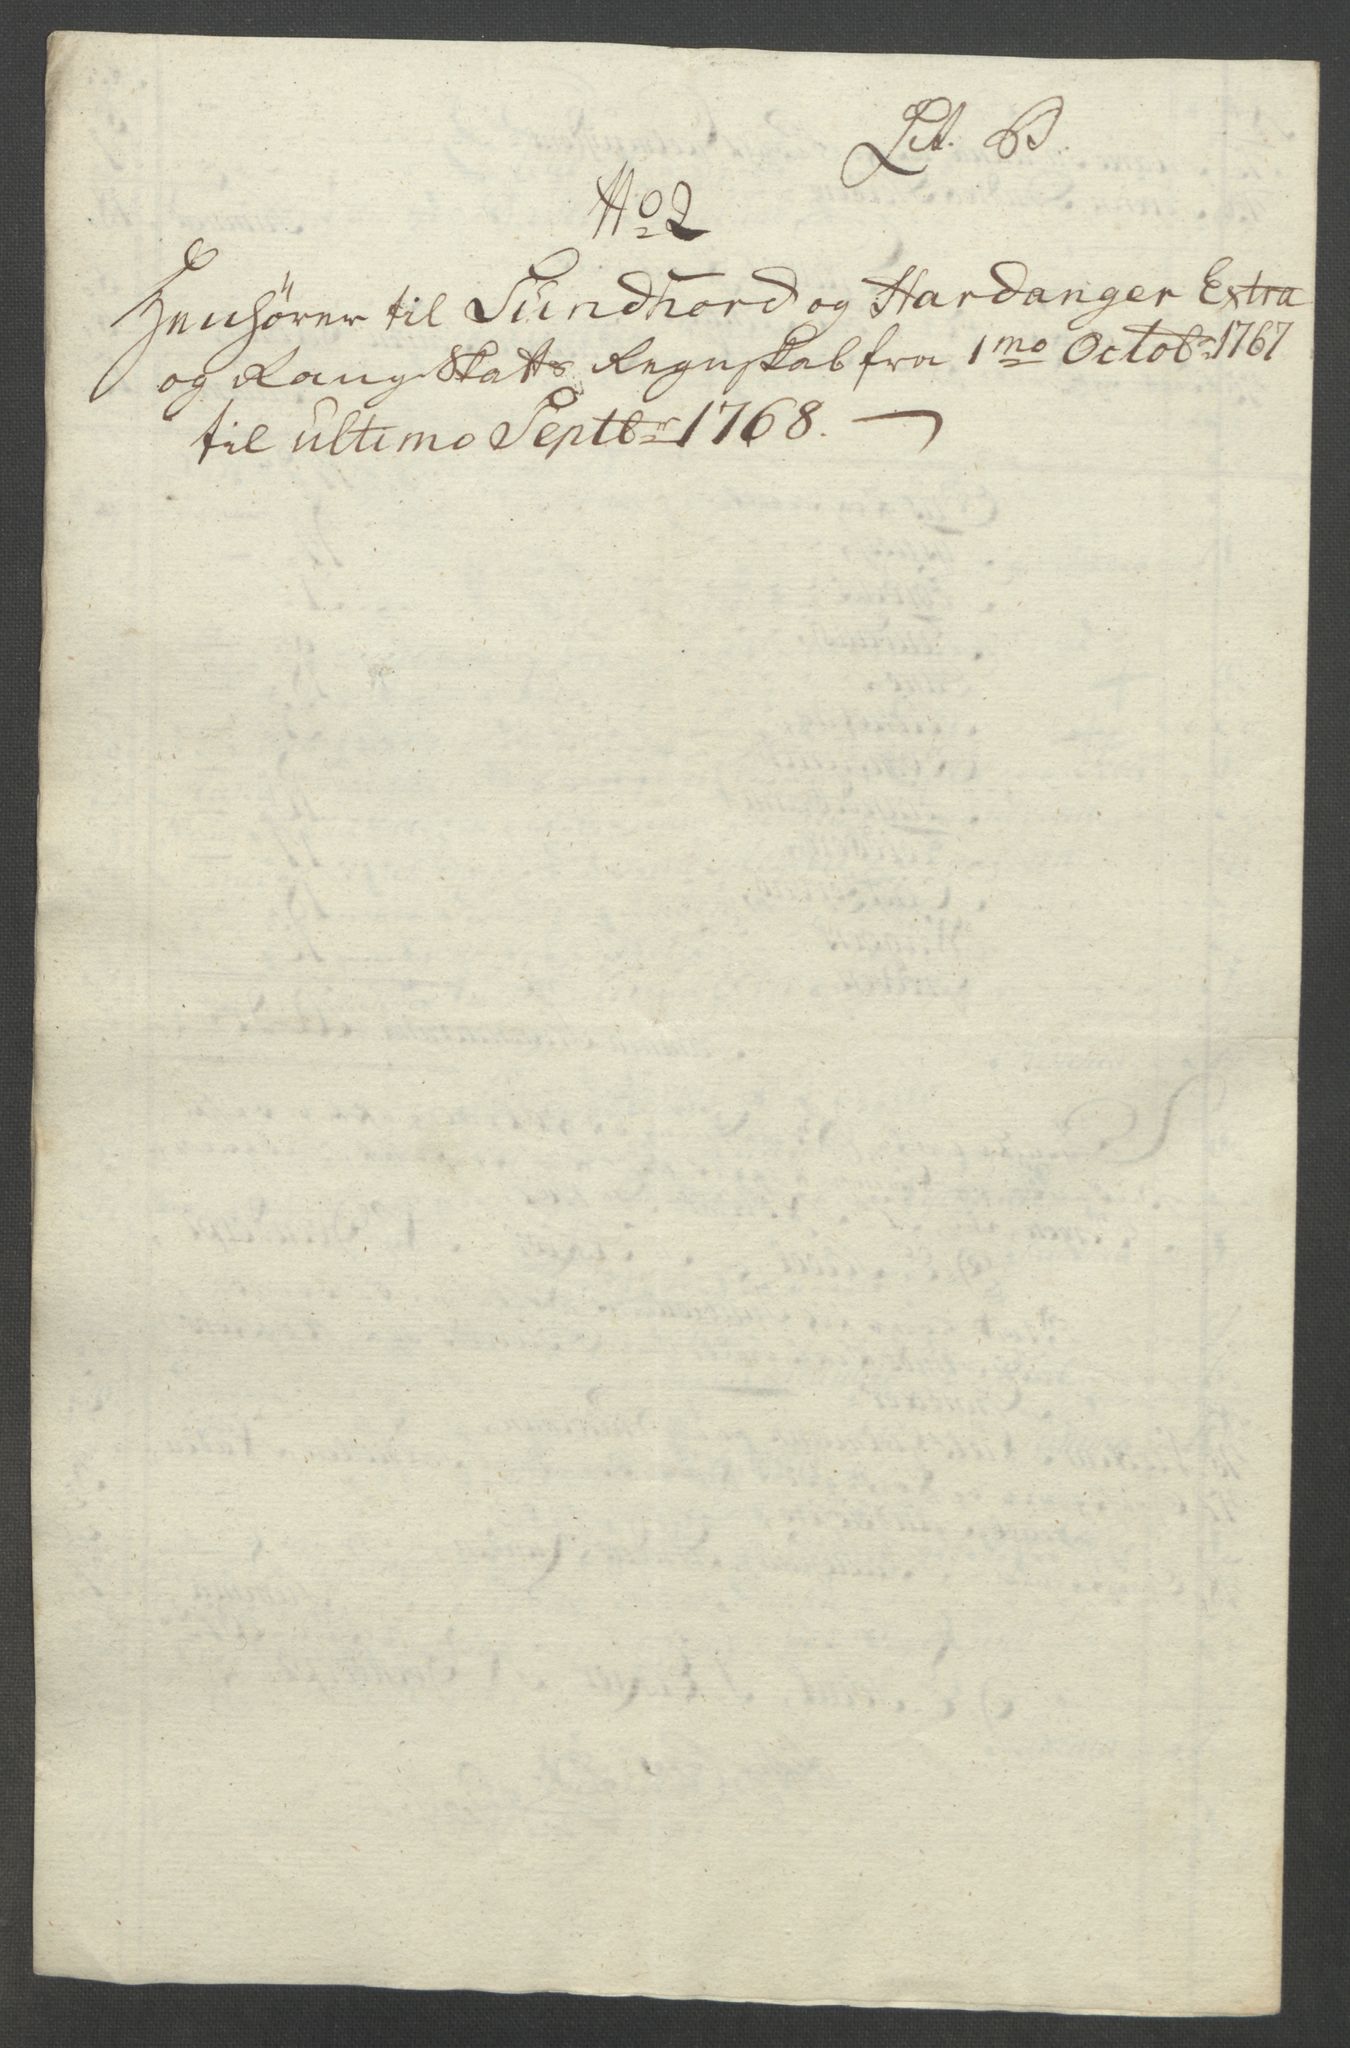 Lit. B.
No 2
Henhörer til Sundhord og Hardanger Extra
og Rang Skatts Regnskab fra 1mo Octobr 1767
til ultimo Septbr 1768.